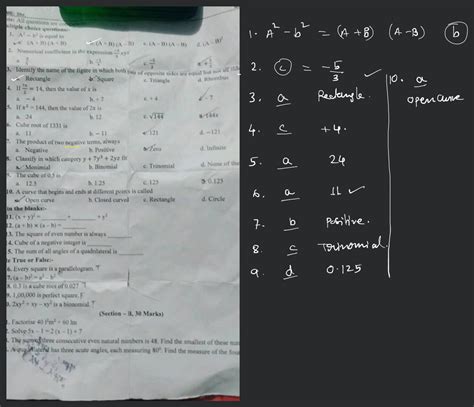 All questions are
multiple choice questions:-
1. A² - b² is equal to
(A + B) (A - B) c. (A - B) (A - B) d. (A - B)²
2. Numerical coefficient in the expression
3. Identify the name of the figure in which both of opposite sides are equal but not all
Rectangle b. Square c. Triangle d. Rhombus
4. If = 14, then the value of x is
a. -4 b. + 7 c. +4 d. - 7
5. If x² = 144, then the value of 2x is
a. 24 b. 12 c. √144 d. 144x
6. Cube root of 1331 is
a. 11 b. -11 c. 121 d. -121
7. The product of two negative terms, always
a. Negative b. Positive c. Zero d. Infinite
8. Classify in which category y + 7y³ + 2yz fit
a. Monomial b. Binomial c. Trinomial d. None of the
9. The cube of 0.5 is
a. 12.5 b. 1.25 c. 123 0.125
10. A curve that begins and ends at different points is called
Open curve b. Closed curve c. Rectangle d. Circle
in the blanks:-
11. (x + y)² = ______ + ______ + y²
12. (a + b) × (a - b) = ______
13. The square of even number is always ______
14. Cube of a negative integer is ______
15. The sum of all angles of a quadrilateral is ______
True or False:-
6. Every square is a parallelogram.
7. (a - b)² = a² - b²
8. 0.3 is a cube root of 0.027
9. 1,00,000 is perfect square.
20. 2xy² + xy - xy² is a binomial.
(Section – B, 30 Marks)
1. Factorise 40 l²m² + 60 lm
2. Solve 5x - 1 = 2 (x - 1) + 7
The sum of three consecutive even natural numbers is 48. Find the smallest of these num
A quadrilateral has three acute angles, each measuring 80°. Find the measure of the four
1. A² - b² = (A + B) (A - B) b
2. c = -5/3 ✓
3. a Rectangle.
4. c +4.
5. a 24
6. a 11 ✓
7. b positive.
8. c Trinomial.
9. d 0.125
10. a
open curve